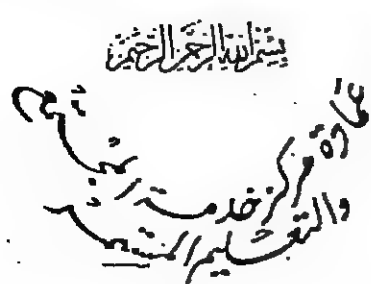 بسم الله الرحمن الرحيم
عمادة مركز خدمة المجتمع
والتعليم المستمر